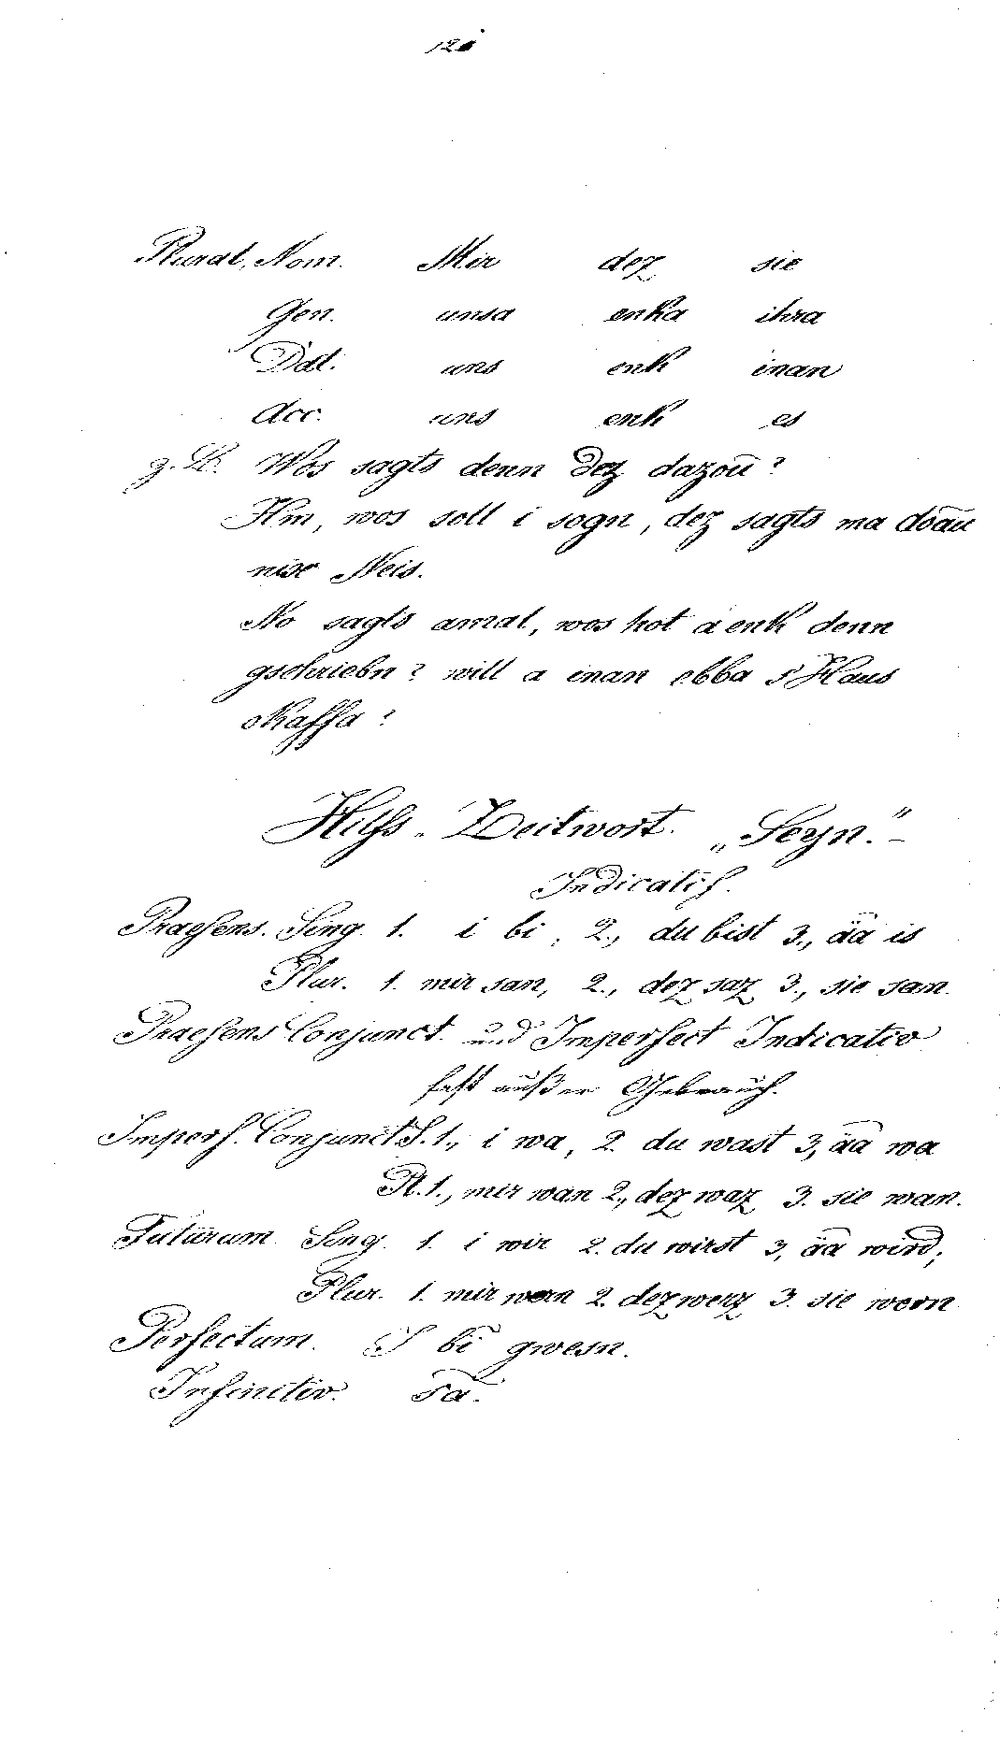 Plural, Nom. Mir dez sie
Gen. unsa enka ihra
Dat. uns enk inan
Acc. uns enk es
z. B. Wos sagts denn dez dazoū?
Hm, wos soll i sogn, dez sagts ma doău
nix Neis.
No sagts amal, wos hot a enk denn
gschriebn? will a inan ebba s'Haus
kaffa?
Hilfs-Zeitwort. „Seyn."-
Indicatif.
Praesens. Sing. 1. i bi, 2., du bist 3., ää is
Plur. 1. mir san, 2., dez saz 3., sie san.
Praesens Conjunct. und Imperfect Indicativ
fast außer Gebrauch.
Imperf. Conjunct S. 1., i wa, 2. du wast 3, ää wa
Pl. 1., mir wan 2., dez waz 3. sie wan.
Futurum Sing. 1. i wir 2. du wirst 3, ää wird;
Plur. 1. mir wern 2. dez werz 3. sie wern
Perfectum. I bī gwesn.
Infinitiv. sa.